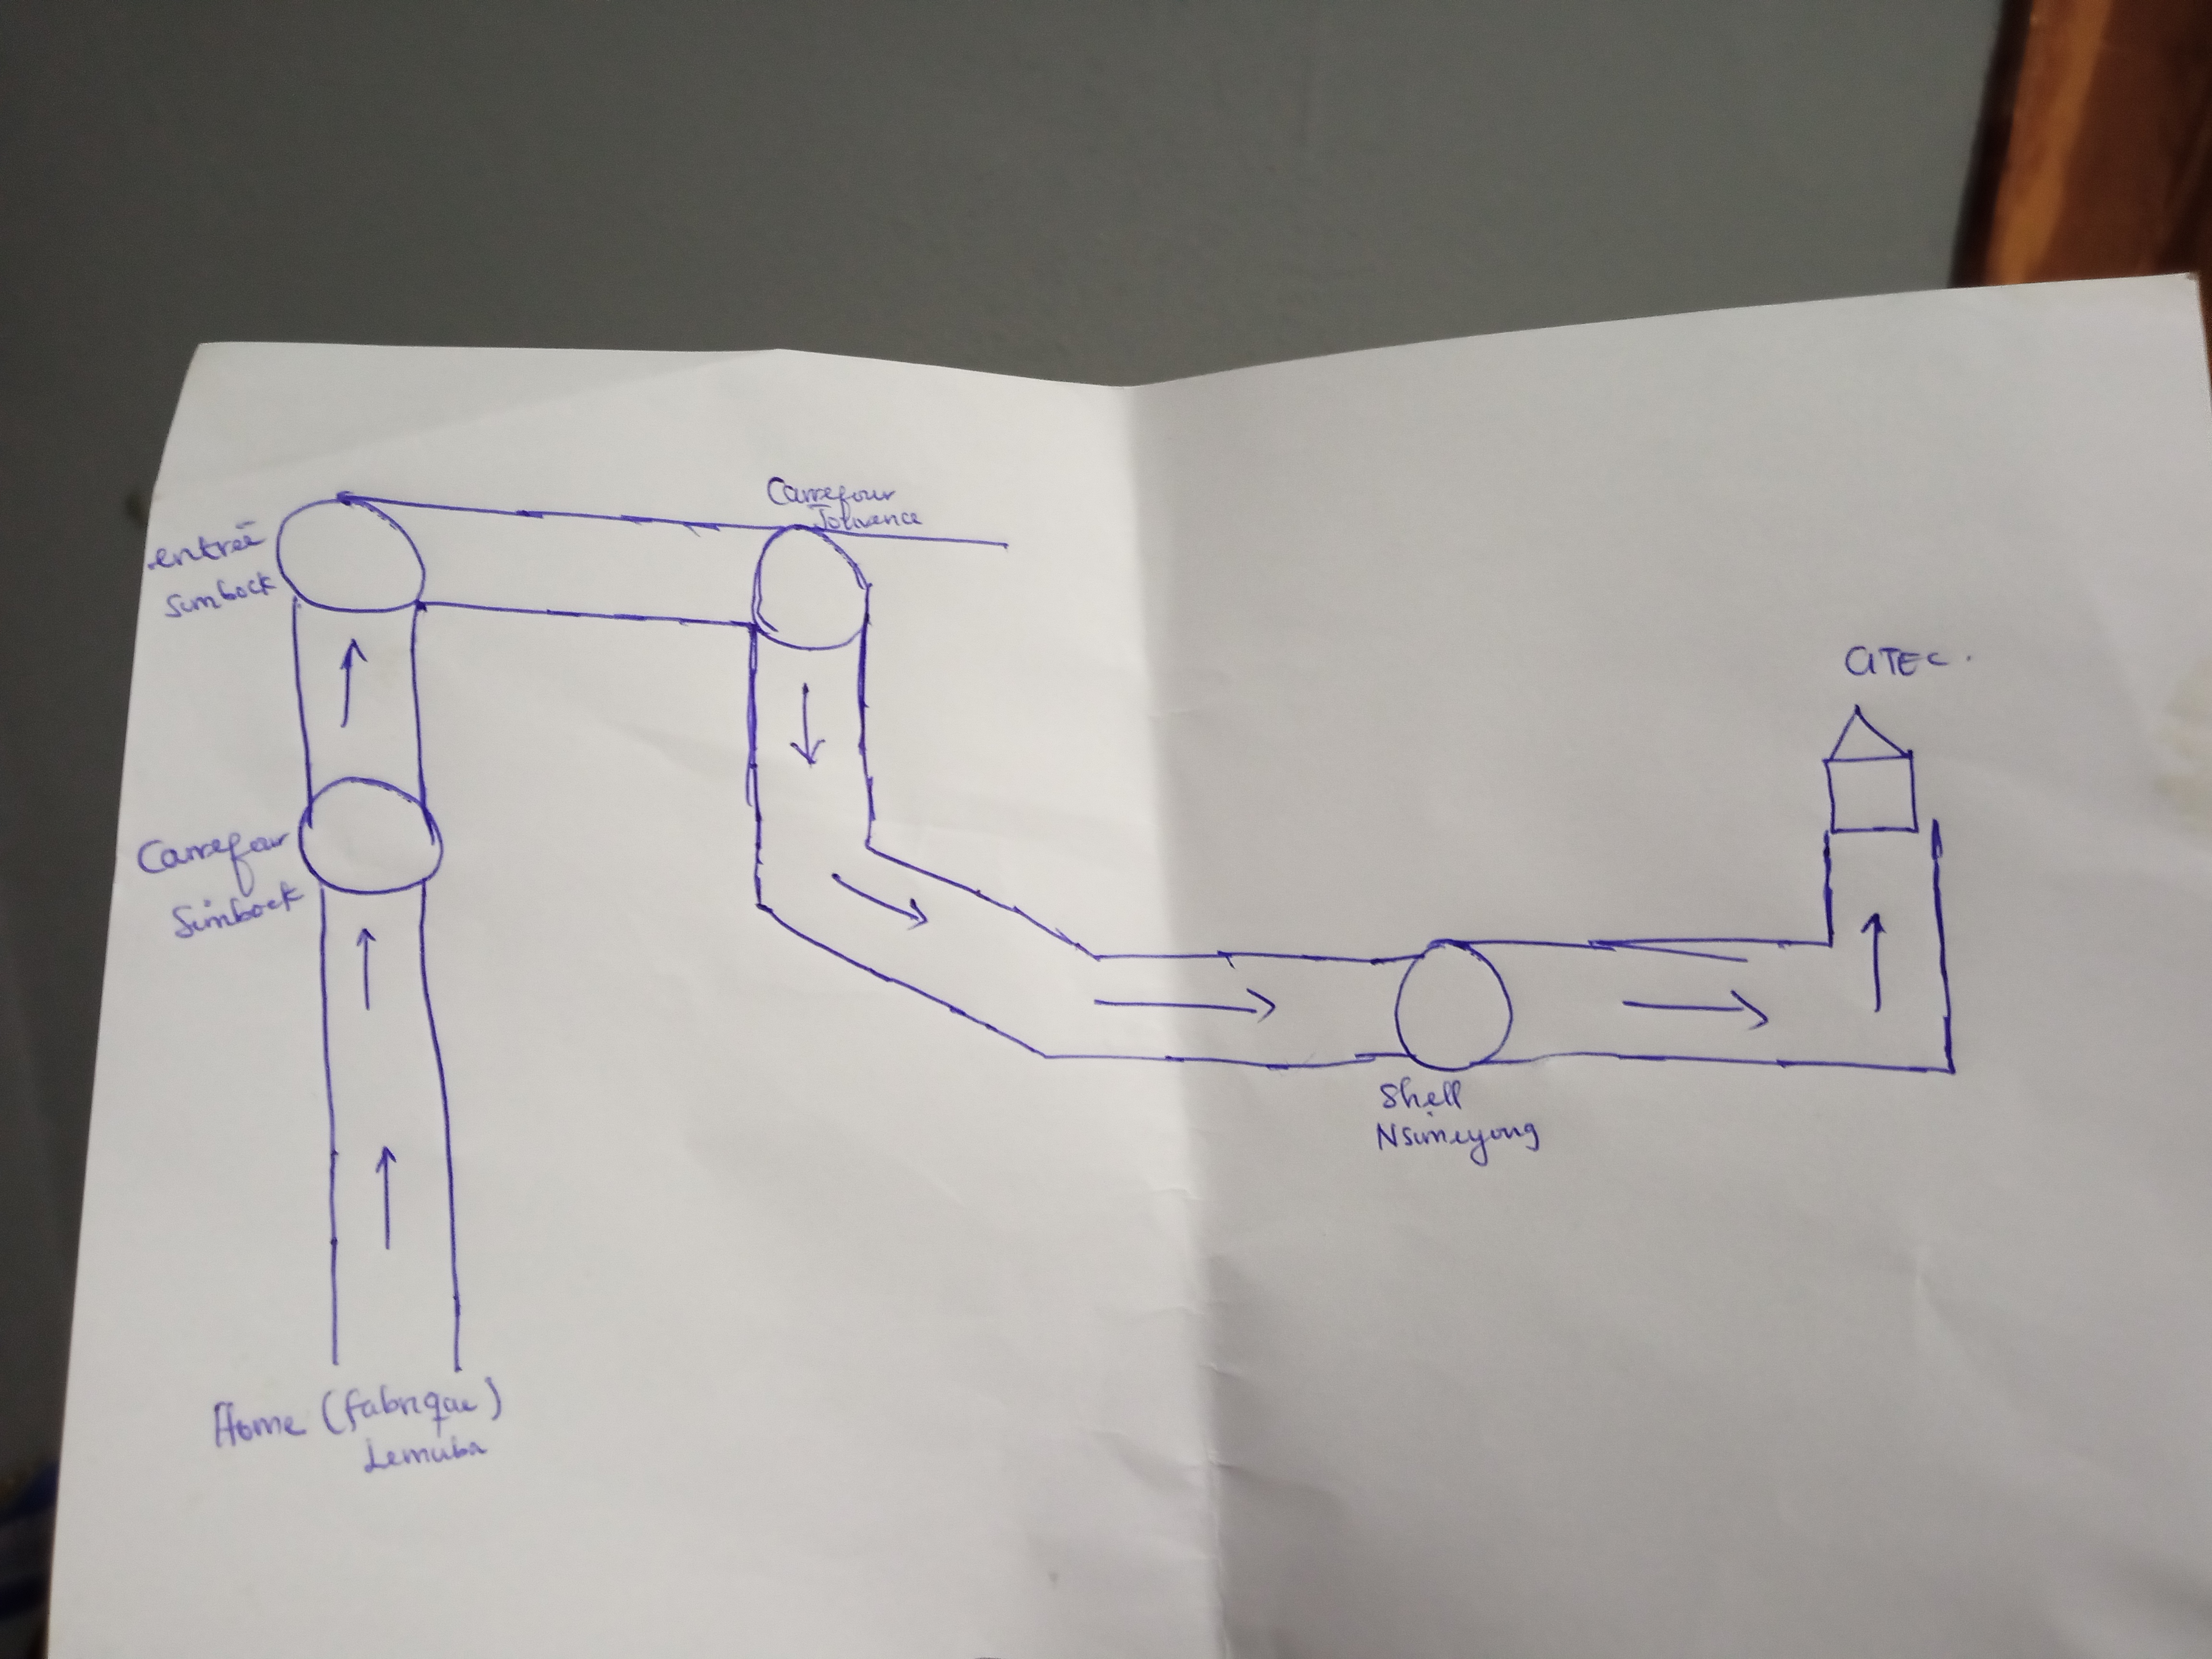 Carrefour
Jouvence
entrée
Simbock
CITEC.
Carrefour
Simbock
Shell
Nsimeyong
Home (fabrique)
Lemuba